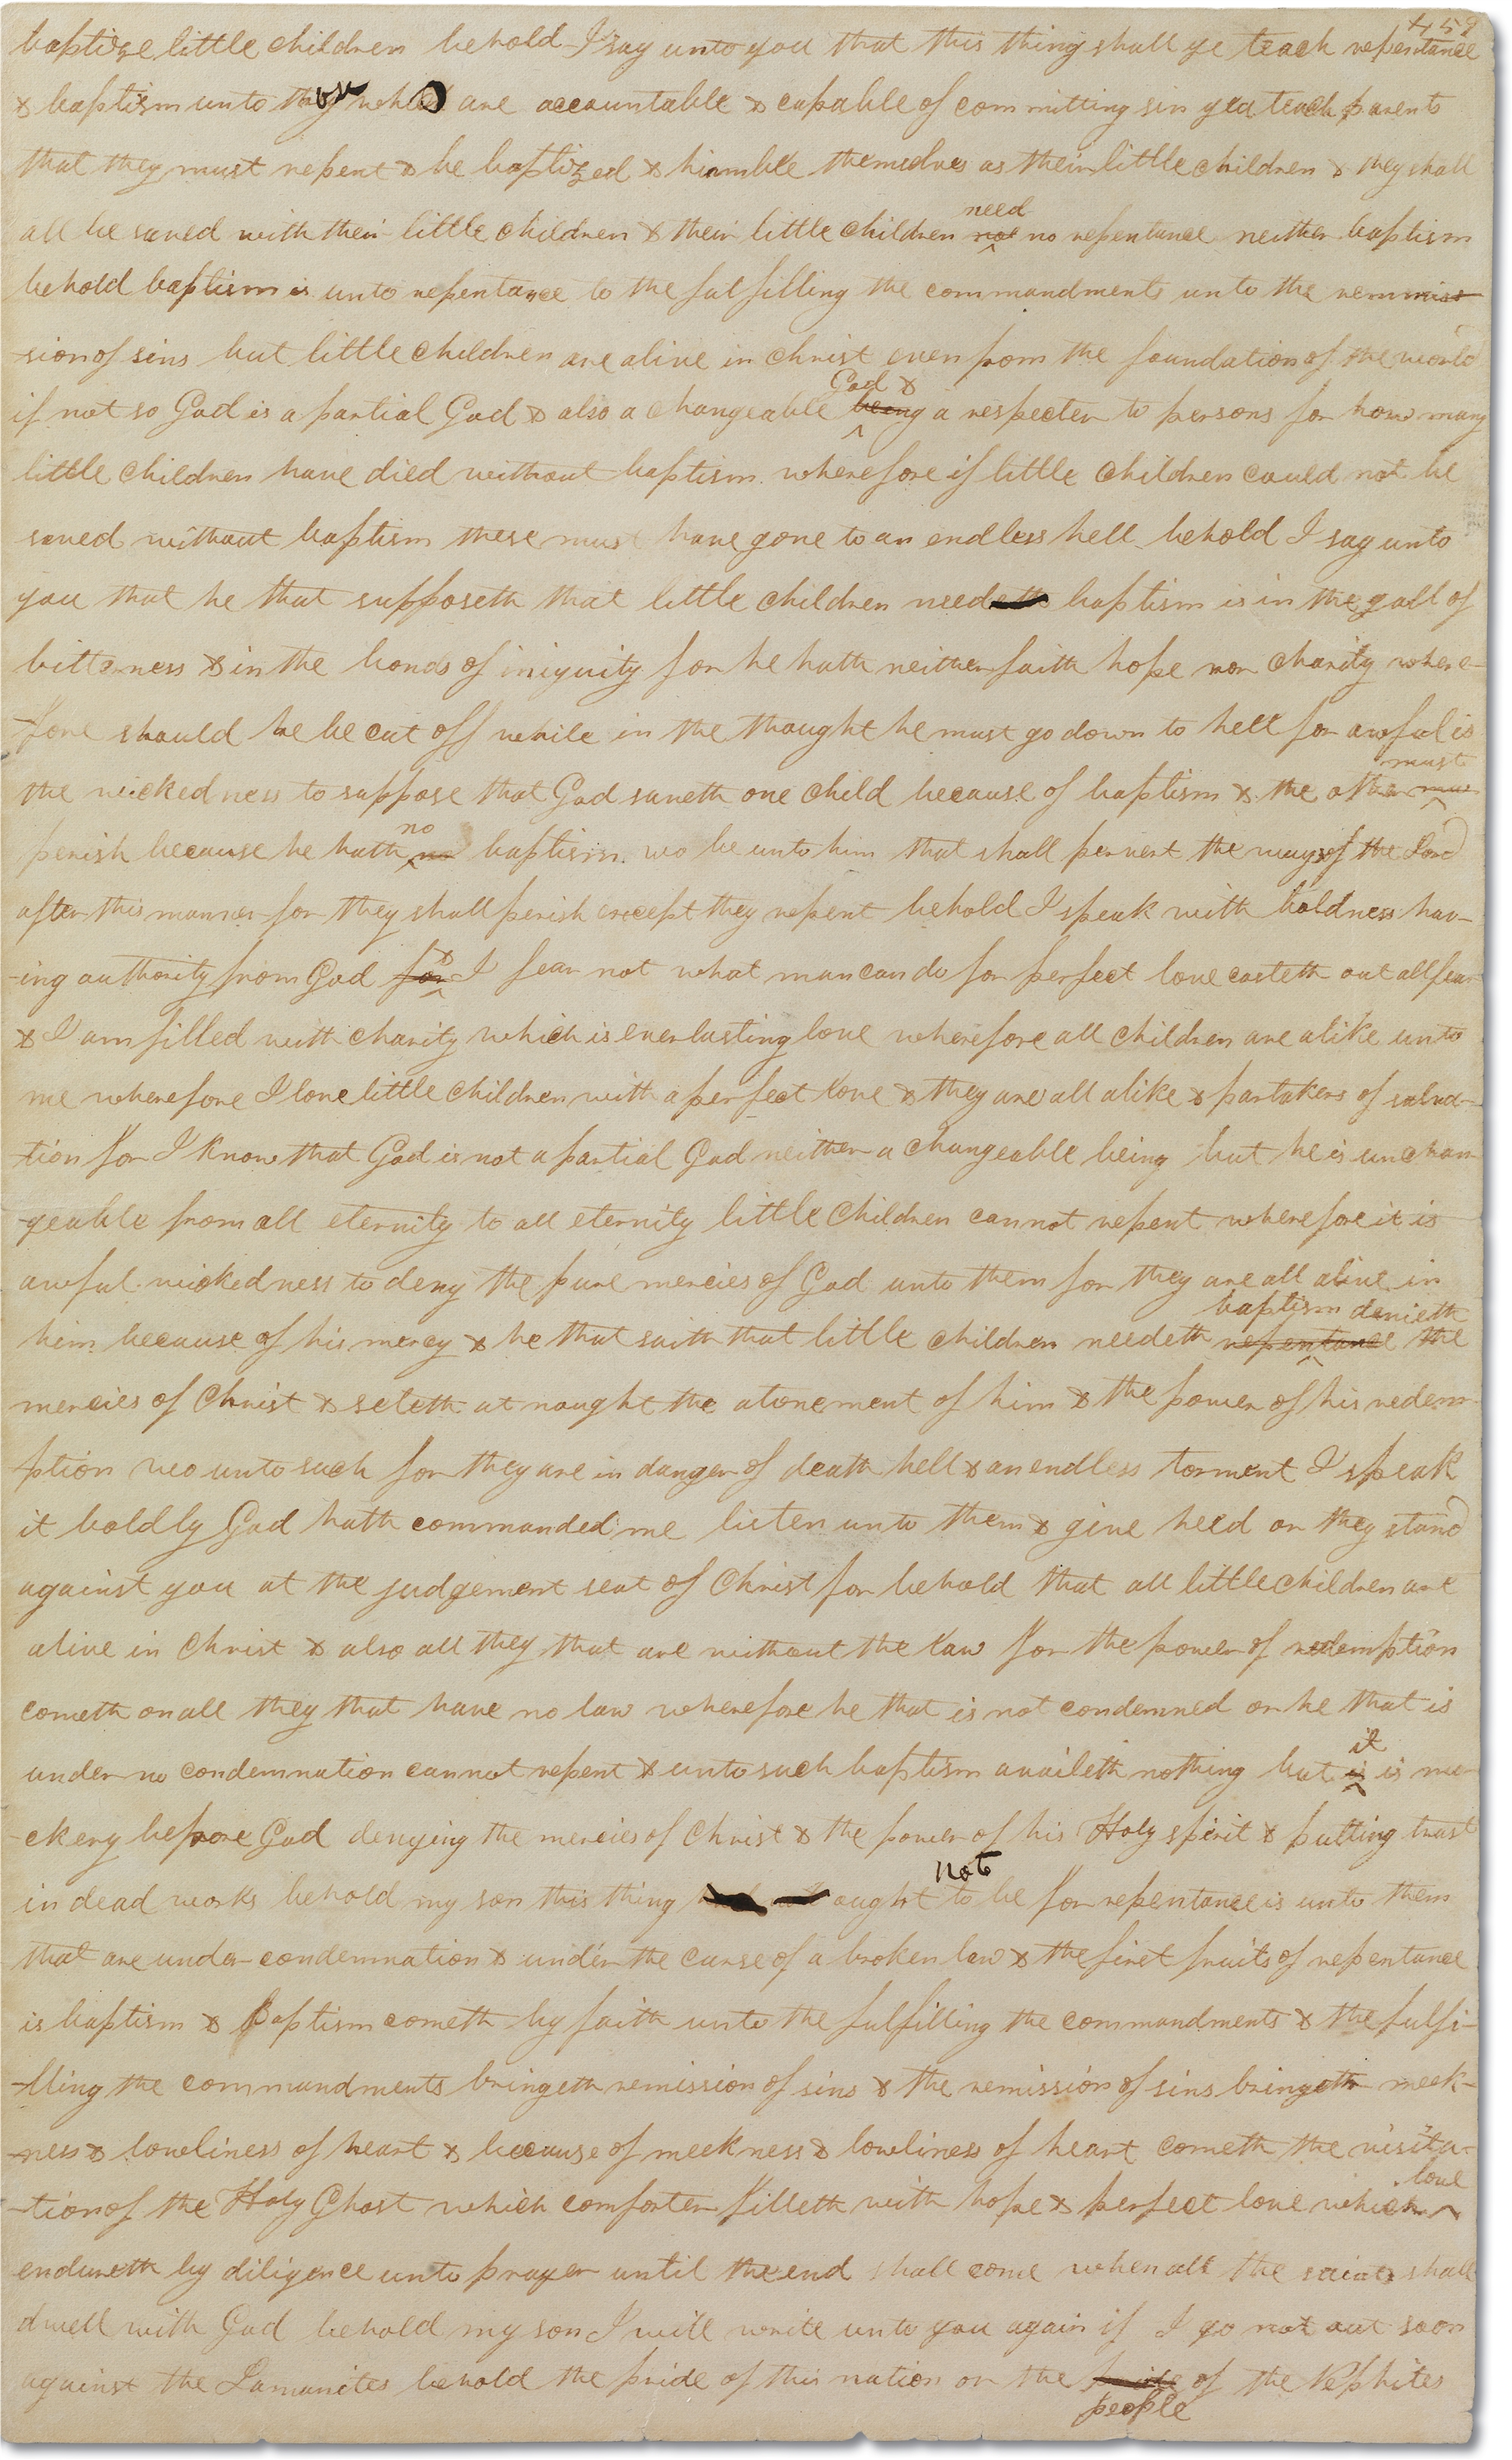 458
baptize little children behold I say unto you that this thing shall ye teach repentance
& baptism unto those who are accountable & capable of committing sin yea teach parents
that they must repent & be baptized & humble themselves as their little children & they shall
need
all be saved with their little children & their little children not no repentance neither baptism
behold baptism is unto repentance to the fulfilling the commandments unto the remmiss
-sion of sins but little children are alive in christ even from the foundation of the world
God &
if not so God is a partial God & also a changeable being a respecter to persons for how many
little children have died without baptism wherefore if little children could not be
saved without baptism these must have gone to an endless hell behold I say unto
you that he that supposeth that little children needeth baptism is in the gall of
bitterness & in the bonds of iniquity for he hath neither faith hope nor charity where-
-fore should he be cut off while in the thought he must go down to hell for awful is
must
the wickedness to suppose that God saveth one child because of baptism & the other
no
perish because he hath no baptism wo be unto him that shall pervert the ways of the Lord
after this manner for they shall perish except they repent behold I speak with boldness hav-
&
-ing authority from God for I fear not what man can do for perfect love casteth out all fear
& I am filled with charity which is everlasting love wherefore all children are alike unto
me wherefore I love little children with a perfect love & they are all alike & partakers of salva-
-tion for I know that God is not a partial God neither a changeable being but he is unchan-
-geable from all eternity to all eternity little children cannot repent wherefore it is
awful wickedness to deny the pure mercies of God unto them for they are all alive in
baptism denieth
him because of his mercy & he that saith that little children needeth repentance the
mercies of Christ & seteth at nought the atonement of him & the power of his redem-
-ption wo unto such for they are in danger of death hell & an endless torment I speak
it boldly God hath commanded me listen unto them & give heed or they stand
against you at the judgement seat of Christ for behold that all little children are
alive in Christ & also all they that are without the law for the power of redemption
cometh on all they that have no law wherefore he that is not condemned or he that is
it
under no condemnation cannot repent & unto such baptism availeth nothing but is is mo-
-ckery before God denying the mercies of Christ & the power of his Holy spirit & putting trust
not
in dead works behold my son this thing ought to be for repentance is unto them
that are under condemnation & under the curse of a broken law & the first fruits of repentance
is baptism & Baptism cometh by faith unto the fulfilling the commandments & the fulfi-
-lling the commandments bringeth remission of sins & the remission of sins bringeth meek-
-ness & lowliness of heart & because of meekness & lowliness of heart cometh the visita-
love
-tion of the Holy Ghost which comforter filleth with hope & perfect love which
endureth by diligence unto prayer until the end shall come when all the saints shall
dwell with God behold my son I will write unto you again if I go not out soon
against the Lamanites behold the pride of this nation or the pride of the Nephites
people